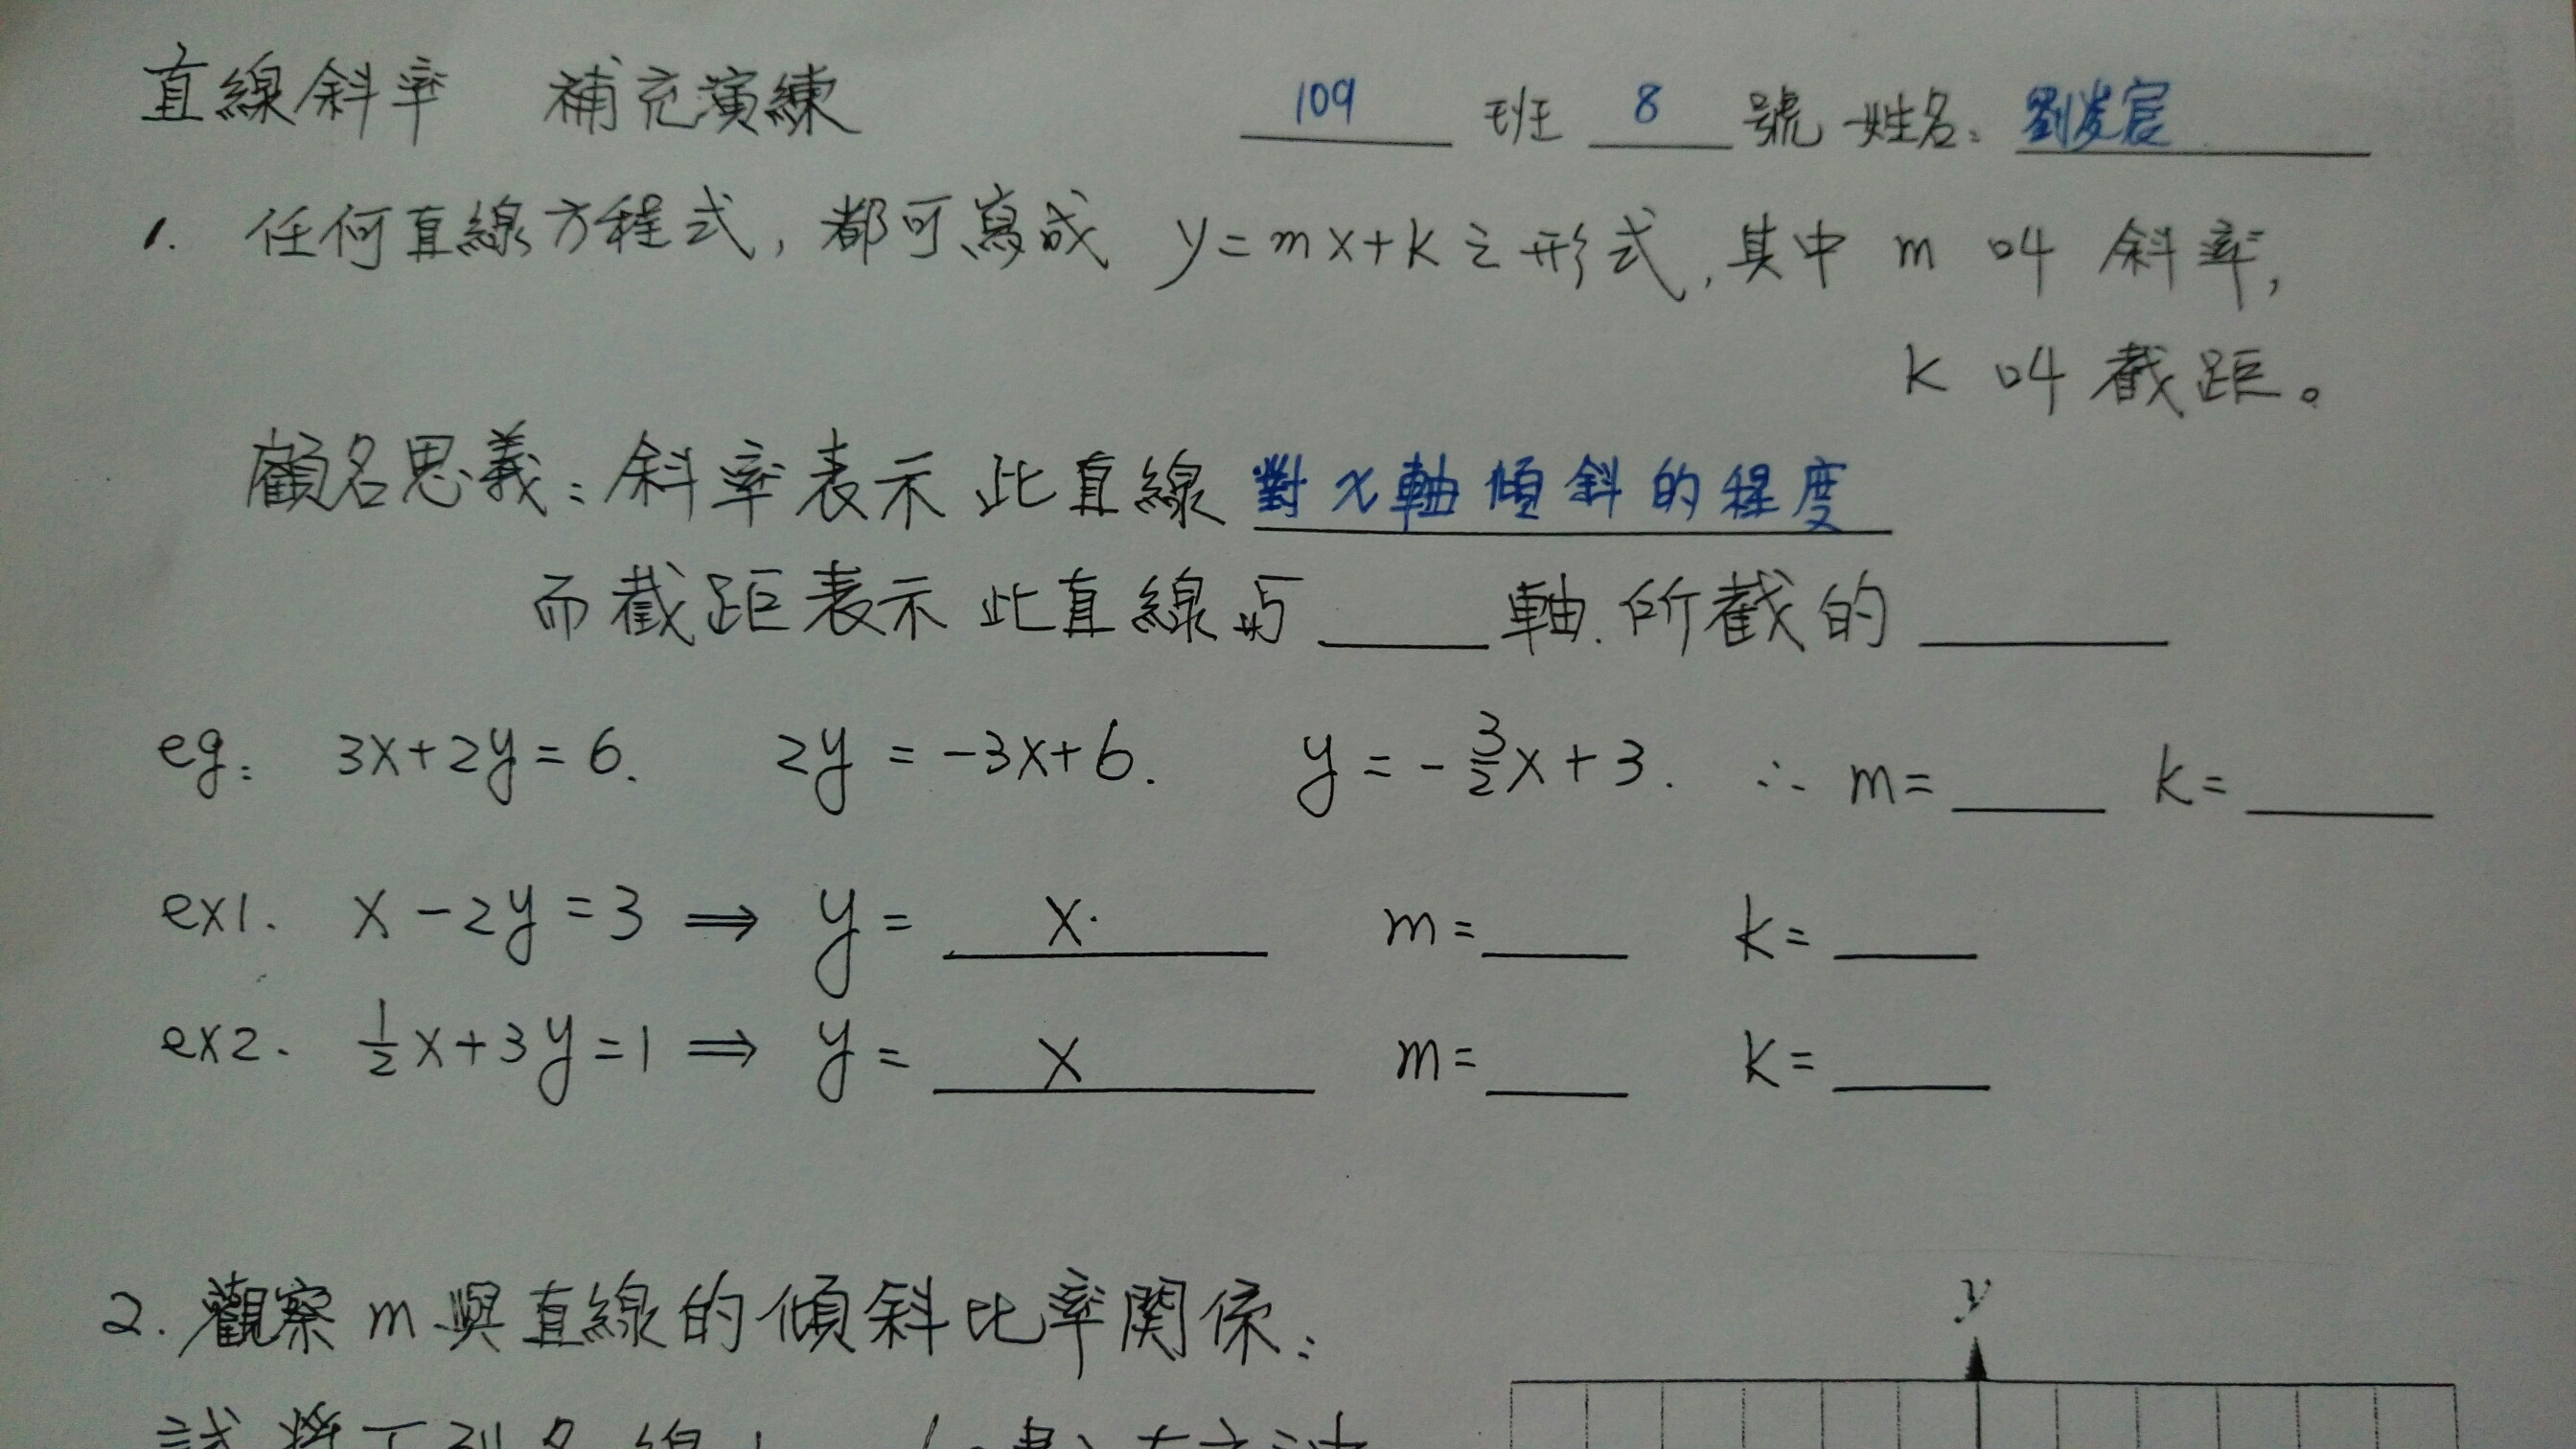 直線斜率 補充演練 109 班 8 號 姓名: 劉凌宸
1. 任何直線方程式, 都可寫成 y=mx+k 之形式, 其中 m 叫 斜率,
k 叫 截距。
顧名思義: 斜率表示此直線 對x軸傾斜的程度
而截距表示此直線与 ____ 軸.所截的 ____
eg: 3x+2y=6. 2y=-3x+6. y=-3/2x+3. ∴ m=____ k=____
ex1. x-2y=3 ⇒ y= __x__ m=____ k=____
ex2. 1/2x+3y=1 ⇒ y= __x__ m=____ k=____
2. 觀察 m 與直線的傾斜比率關係:
y